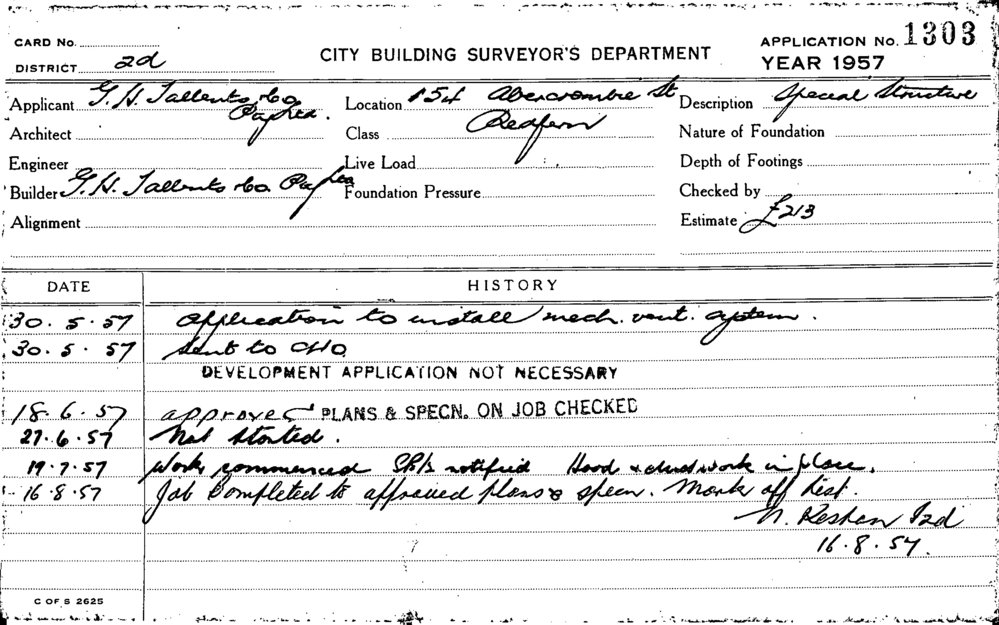 CARD No.
DISTRICT 2d
CITY BUILDING SURVEYOR'S DEPARTMENT
APPLICATION No. 1303
YEAR 1957
Applicant G. H. Tallents & Co
Location 154 Abercrombie St
Redfern
Description Special Structure
Architect
Class
Nature of Foundation
Engineer
Live Load
Depth of Footings
Builder G. H. Tallents & Co.
Foundation Pressure
Checked by
Alignment
Estimate £213
DATE
HISTORY
30. 5. 57 Application to install mech. vent. system.
30. 5. 57 Sent to CHO
DEVELOPMENT APPLICATION NOT NECESSARY
18. 6. 57 approved PLANS & SPECN. ON JOB CHECKED
27. 6. 57 Not started.
19. 7. 57 Work commenced notified Hood & ductwork in place.
16. 8. 57 Job Completed to approved plans & specn. Mark off list.
16. 8. 57.
C OF S 2625